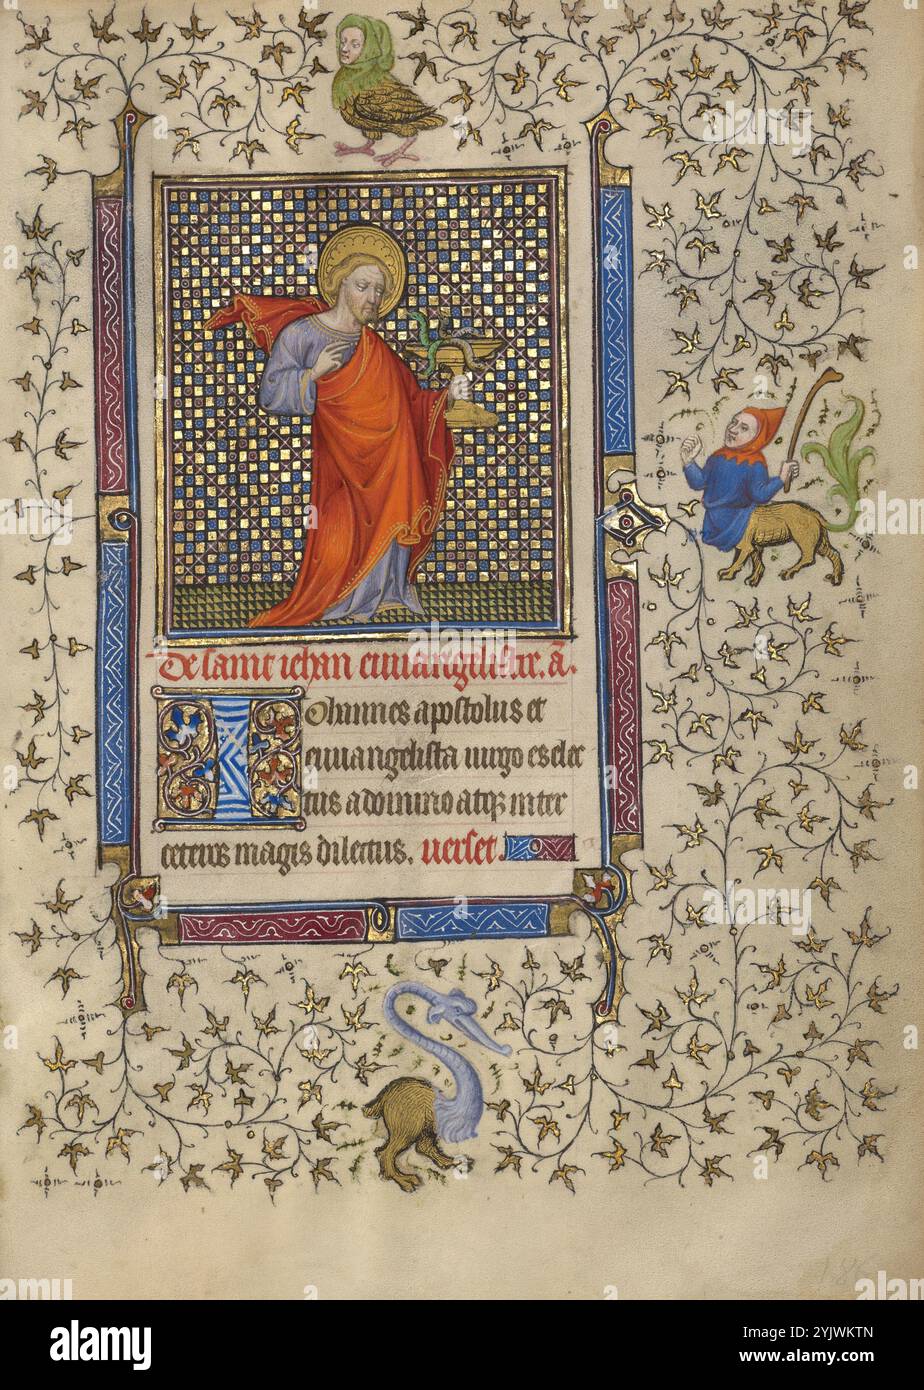 De saint iehan euuangeliste. a͞.
Iohannes apostolus et
euuangelista uirgo est elec
tus a domino atq₃ inter
ceteros magis dilectus. uerset.
186
alamy
alamy
Image ID: 2YJWKTN
www.alamy.com